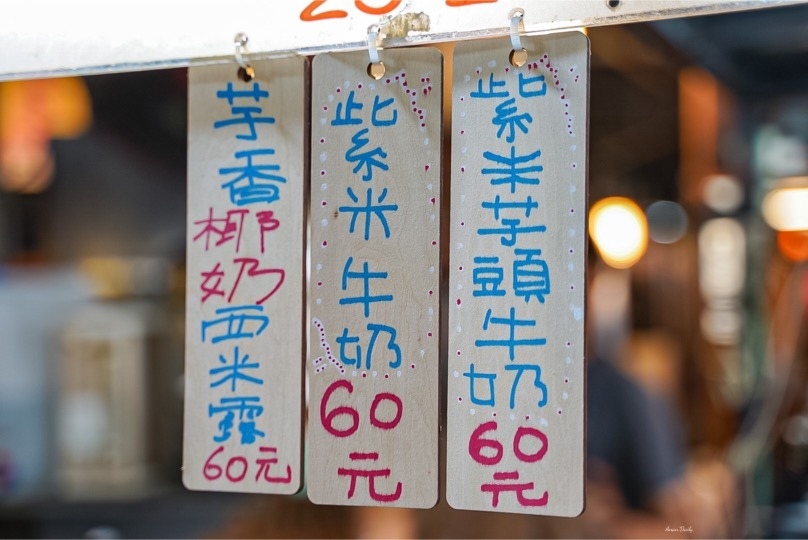 芋香椰奶西米露
60元
紫米牛奶
60
元
紫米芋頭牛奶
60
元